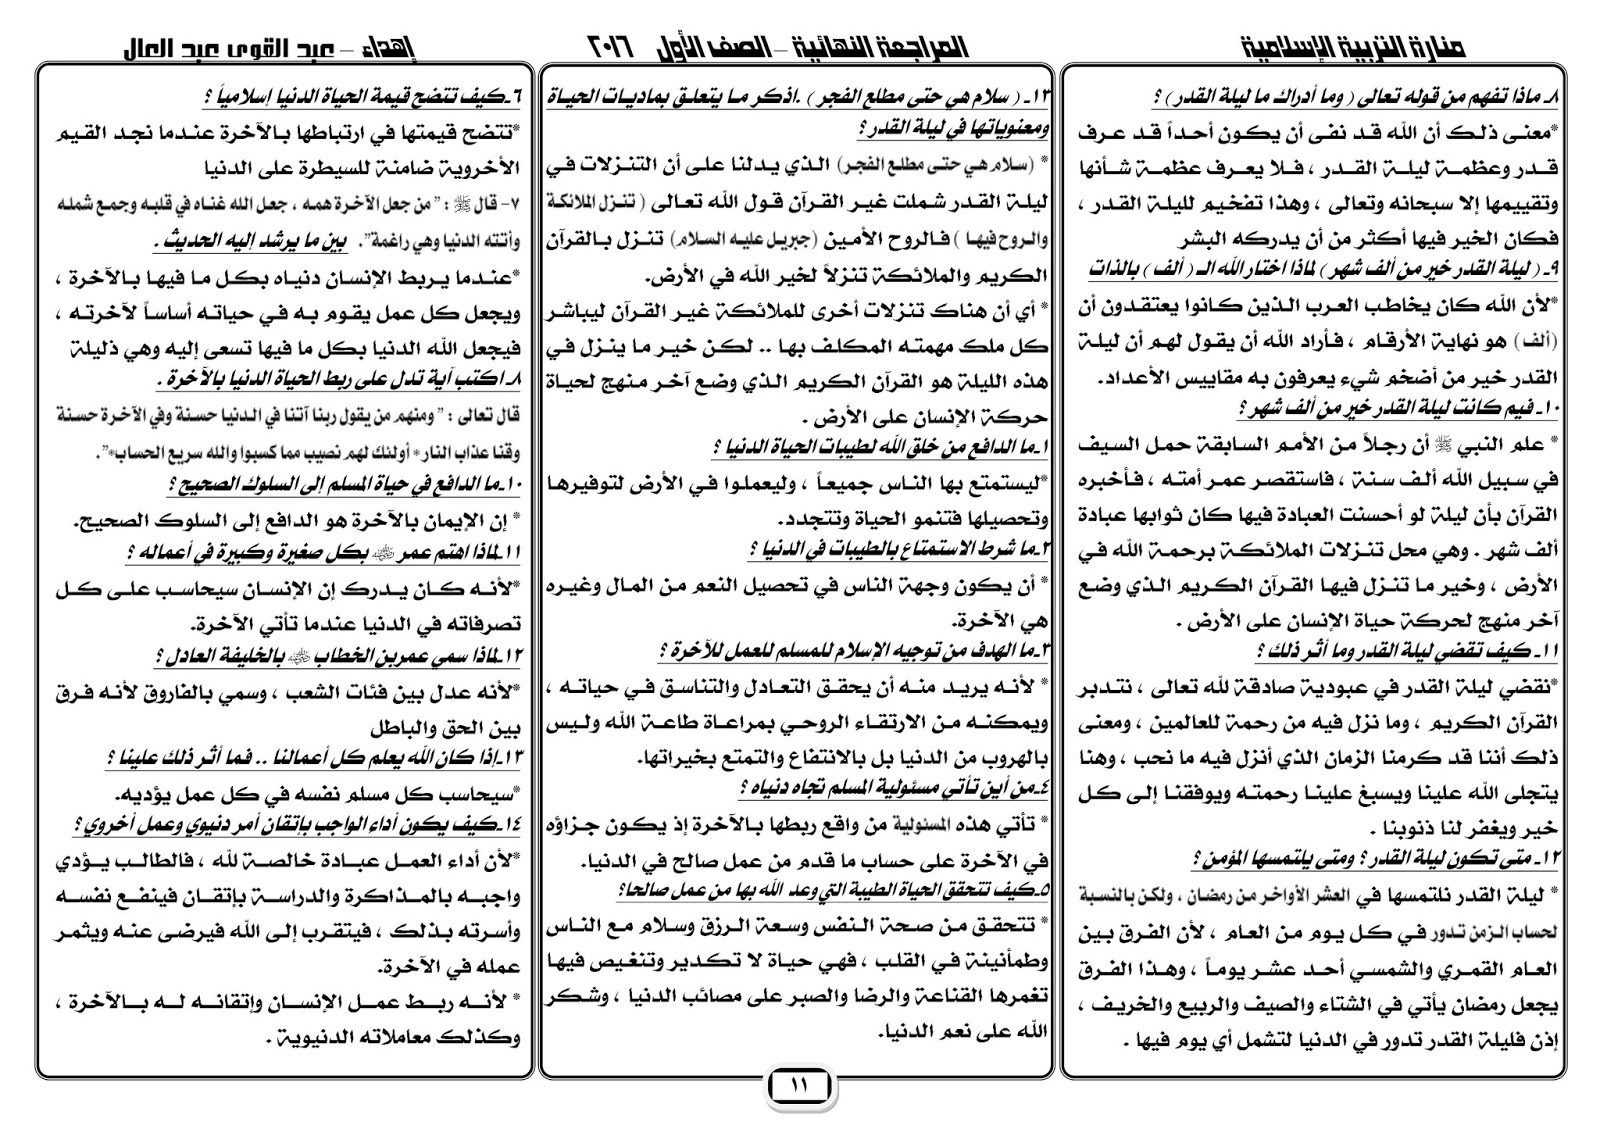 منارة التربية الإسلامية
المراجعة النهائية – الصف الأول ٢٠١٦
إهداء – عبد القوى عبد العال
٨ـ ماذا تفهم من قوله تعالى ( وما أدراك ما ليلة القدر ) ؟
*معنى ذلك أن الله قد نفى أن يكون أحداً قد عرف
قدر وعظمة ليلة القدر ، فلا يعرف عظمة شأنها
وتقييمها إلا سبحانه وتعالى ، وهذا تفخيم لليلة القدر ،
فكان الخير فيها أكثر من أن يدركه البشر
٩ـ ( ليلة القدر خير من ألف شهر ) لماذا اختار الله الـ ( ألف ) بالذات
*لأن الله كان يخاطب العرب الذين كانوا يعتقدون أن
(ألف) هو نهاية الأرقام ، فأراد الله أن يقول لهم أن ليلة
القدر خير من أضخم شيء يعرفون به مقاييس الأعداد.
١٠ـ فيم كانت ليلة القدر خير من ألف شهر ؟
* علم النبي ﷺ أن رجلاً من الأمم السابقة حمل السيف
في سبيل الله ألف سنة ، فاستقصر عمر أمته ، فأخبره
القرآن بأن ليلة لو أحسنت العبادة فيها كان ثوابها عبادة
ألف شهر . وهي محل تنزلات الملائكة برحمة الله في
الأرض ، وخير ما تنزل فيها القرآن الكريم الذي وضع
آخر منهج لحركة حياة الإنسان على الأرض .
١١ـ كيف تقضي ليلة القدر وما أثر ذلك ؟
*نقضي ليلة القدر في عبودية صادقة لله تعالى ، نتدبر
القرآن الكريم ، وما نزل فيه من رحمة للعالمين ، ومعنى
ذلك أننا قد كرمنا الزمان الذي أنزل فيه ما نحب ، وهنا
يتجلى الله علينا ويسبغ علينا رحمته ويوفقنا إلى كل
خير ويغفر لنا ذنوبنا .
١٢ـ متى تكون ليلة القدر ؟ ومتى يلتمسها المؤمن ؟
* ليلة القدر نلتمسها في العشر الأواخر من رمضان ، ولكن بالنسبة
لحساب الزمن تدور في كل يوم من العام ، لأن الفرق بين
العام القمري والشمسي أحد عشر يوماً ، وهذا الفرق
يجعل رمضان يأتي في الشتاء والصيف والربيع والخريف ،
إذن فليلة القدر تدور في الدنيا لتشمل أي يوم فيها .
١٣ـ ( سلام هي حتى مطلع الفجر ) .اذكر ما يتعلق بماديات الحياة
ومعنوياتها في ليلة القدر ؟
* (سلام هي حتى مطلع الفجر) الذي يدلنا على أن التنزلات في
ليلة القدر شملت غير القرآن قول الله تعالى ( تنزل الملائكة
والروح فيها ) فالروح الأمين (جبريل عليه السلام) تنزل بالقرآن
الكريم والملائكة تنزلاً لخير الله في الأرض.
* أي أن هناك تنزلات أخرى للملائكة غير القرآن ليباشر
كل ملك مهمته المكلف بها .. لكن خير ما ينزل في
هذه الليلة هو القرآن الكريم الذي وضع آخر منهج لحياة
حركة الإنسان على الأرض .
١ـما الدافع من خلق الله لطيبات الحياة الدنيا ؟
*ليستمتع بها الناس جميعاً ، وليعملوا في الأرض لتوفيرها
وتحصيلها فتنمو الحياة وتتجدد.
٢ـما شرط الاستمتاع بالطيبات في الدنيا ؟
* أن يكون وجهة الناس في تحصيل النعم من المال وغيره
هي الآخرة.
٣ـما الهدف من توجيه الإسلام للمسلم للعمل للآخرة ؟
* لأنه يريد منه أن يحقق التعادل والتناسق في حياته ،
ويمكنه من الارتقاء الروحي بمراعاة طاعة الله وليس
بالهروب من الدنيا بل بالانتفاع والتمتع بخيراتها.
٤ـمن أين تأتي مسئولية المسلم تجاه دنياه ؟
* تأتي هذه المسئولية من واقع ربطها بالآخرة إذ يكون جزاؤه
في الآخرة على حساب ما قدم من عمل صالح في الدنيا.
٥ـكيف تتحقق الحياة الطيبة التي وعد الله بها من عمل صالحا؟
* تتحقق من صحة النفس وسعة الرزق وسلام مع الناس
وطمأنينة في القلب ، فهي حياة لا تكدير وتنغيص فيها
تغمرها القناعة والرضا والصبر على مصائب الدنيا ، وشكر
الله على نعم الدنيا.
٦ـكيف تتضح قيمة الحياة الدنيا إسلامياً ؟
*تتضح قيمتها في ارتباطها بالآخرة عندما نجد القيم
الأخروية ضامنة للسيطرة على الدنيا
٧- قال ﷺ : " من جعل الآخرة همه ، جعل الله غناه في قلبه وجمع شمله
وأتته الدنيا وهي راغمة". بين ما يرشد إليه الحديث .
*عندما يربط الإنسان دنياه بكل ما فيها بالآخرة ،
ويجعل كل عمل يقوم به في حياته أساساً لآخرته ،
فيجعل الله الدنيا بكل ما فيها تسعى إليه وهي ذليلة
٨ـ اكتب آية تدل على ربط الحياة الدنيا بالآخرة .
قال تعالى : " ومنهم من يقول ربنا آتنا في الدنيا حسنة وفي الآخرة حسنة
وقنا عذاب النار* أولئك لهم نصيب مما كسبوا والله سريع الحساب*".
١٠ـما الدافع في حياة المسلم إلى السلوك الصحيح ؟
* إن الإيمان بالآخرة هو الدافع إلى السلوك الصحيح.
١١ـلماذا اهتم عمر ﷺ بكل صغيرة وكبيرة في أعماله ؟
*لأنه كان يدرك إن الإنسان سيحاسب على كل
تصرفاته في الدنيا عندما تأتي الآخرة.
١٢ـلماذا سمي عمر بن الخطاب ﷺ بالخليفة العادل ؟
*لأنه عدل بين فئات الشعب ، وسمي بالفاروق لأنه فرق
بين الحق والباطل
١٣ـإذا كان الله يعلم كل أعمالنا .. فما أثر ذلك علينا ؟
*سيحاسب كل مسلم نفسه في كل عمل يؤديه.
١٤ـكيف يكون أداء الواجب بإتقان أمر دنيوي وعمل أخروي ؟
*لأن أداء العمل عبادة خالصة لله ، فالطالب يؤدي
واجبه بالمذاكرة والدراسة بإتقان فينفع نفسه
وأسرته بذلك ، فيتقرب إلى الله فيرضى عنه ويثمر
عمله في الآخرة.
* لأنه ربط عمل الإنسان وإتقانه له بالآخرة ،
وكذلك معاملاته الدنيوية .
١١